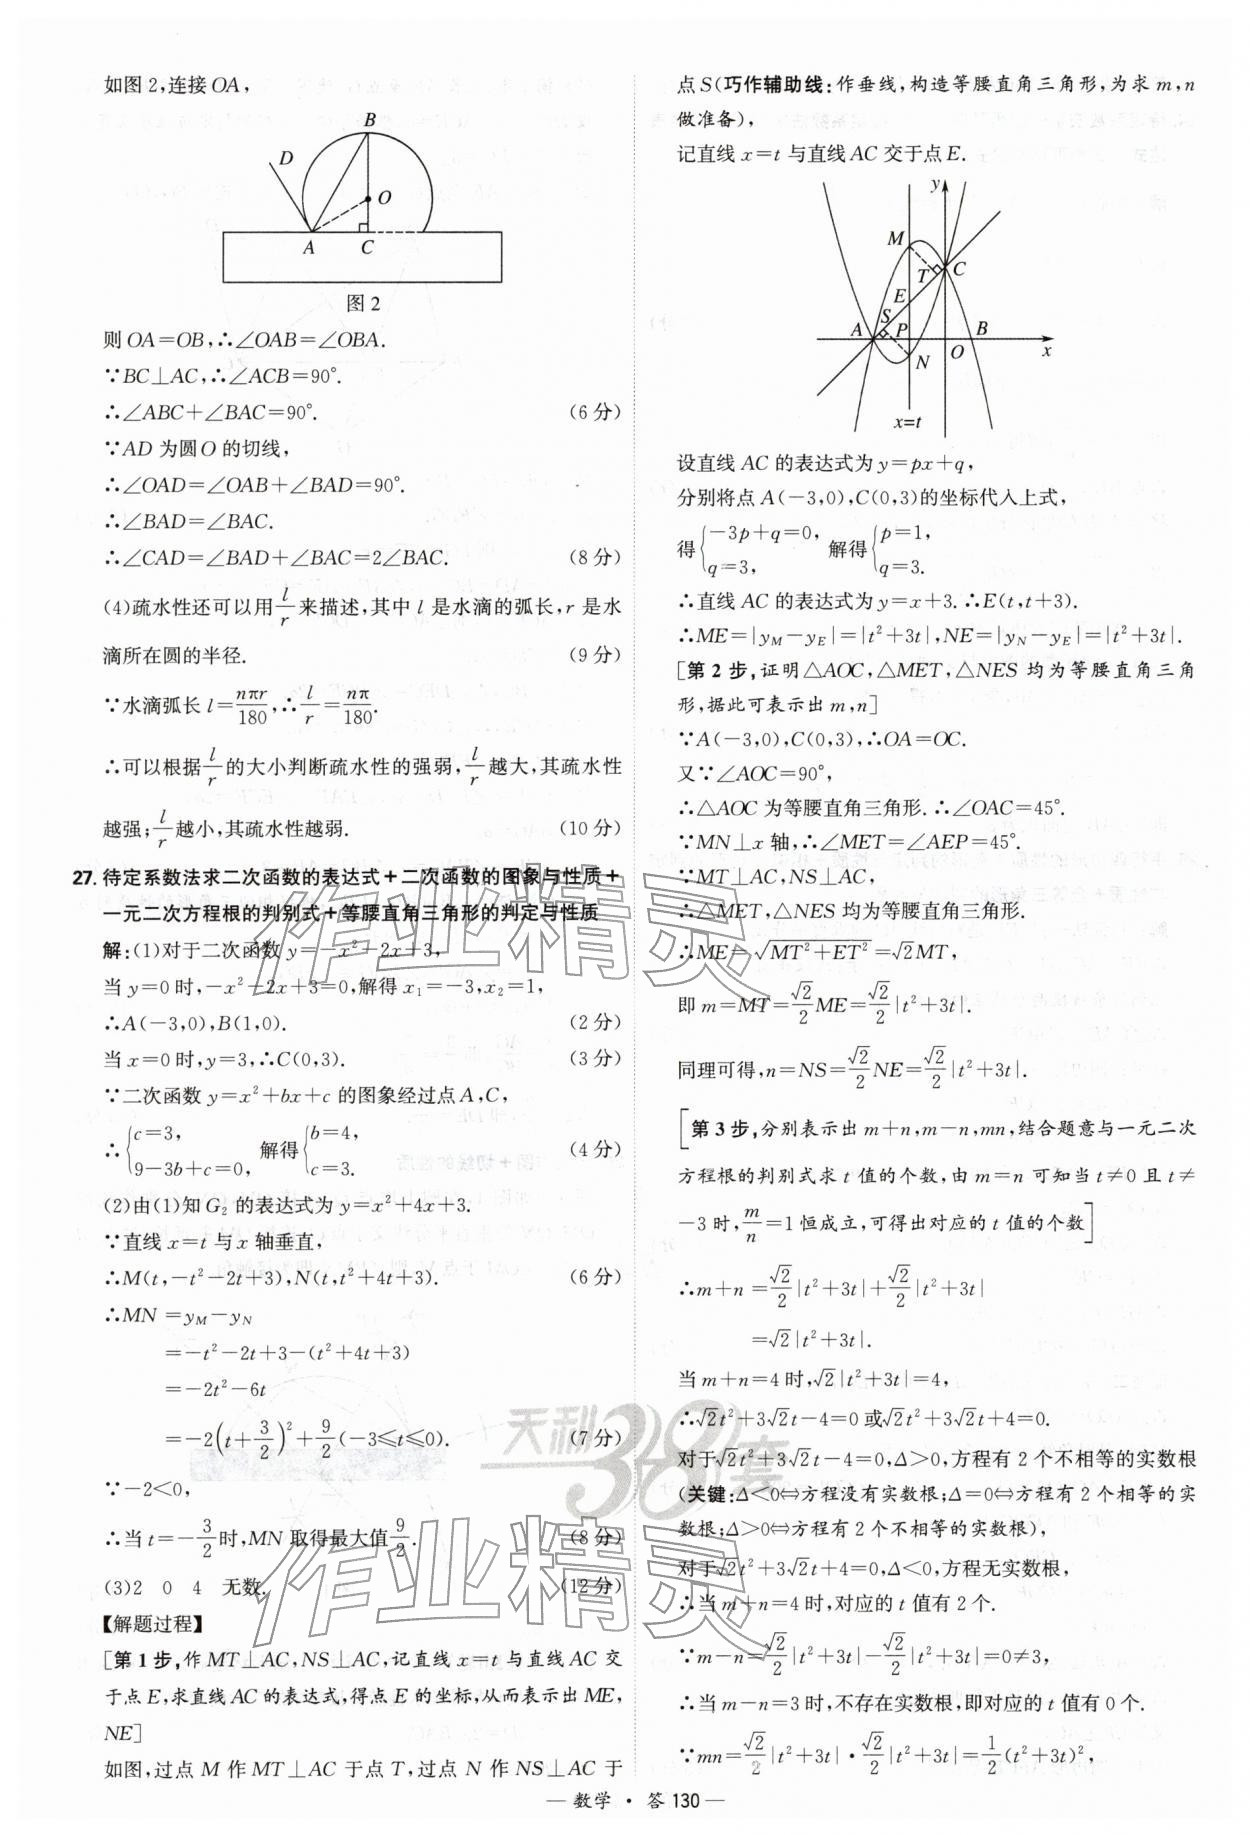 如图2,连接OA,
B
D
O
A
C
图2
则OA=OB,∴∠OAB=∠OBA.
∵BC⊥AC,∴∠ACB=90°.
∴∠ABC+∠BAC=90°. (6分)
∵AD为圆O的切线,
∴∠OAD=∠OAB+∠BAD=90°.
∴∠BAD=∠BAC.
∴∠CAD=∠BAD+∠BAC=2∠BAC. (8分)
(4)疏水性还可以用l/r来描述,其中l是水滴的弧长,r是水
滴所在圆的半径. (9分)
∵水滴弧长l=nπr/180,∴l/r=nπ/180.
∴可以根据l/r的大小判断疏水性的强弱,l/r越大,其疏水性
越强;l/r越小,其疏水性越弱. (10分)
27. 待定系数法求二次函数的表达式+二次函数的图象与性质+
一元二次方程根的判别式+等腰直角三角形的判定与性质
解:(1)对于二次函数y=-x²-2x+3,
当y=0时,-x²-2x+3=0,解得x₁=-3,x₂=1,
∴A(-3,0),B(1,0). (2分)
当x=0时,y=3,∴C(0,3). (3分)
∵二次函数y=x²+bx+c的图象经过点A,C,
∴{c=3, 9-3b+c=0, 解得{b=4, c=3. (4分)
(2)由(1)知G₂的表达式为y=x²+4x+3.
∵直线x=t与x轴垂直,
∴M(t,-t²-2t+3),N(t,t²+4t+3). (6分)
∴MN=y_M-y_N
=-t²-2t+3-(t²+4t+3)
=-2t²-6t
=-2(t+3/2)²+9/2(-3≤t≤0). (7分)
∵-2<0,
∴当t=-3/2时,MN取得最大值9/2. (8分)
(3)2 0 4 无数. (12分)
【解题过程】
[第1步,作MT⊥AC,NS⊥AC,记直线x=t与直线AC交
于点E,求直线AC的表达式,得点E的坐标,从而表示出ME,
NE]
如图,过点M作MT⊥AC于点T,过点N作NS⊥AC于
点S(巧作辅助线:作垂线,构造等腰直角三角形,为求m,n
做准备),
记直线x=t与直线AC交于点E.
y
M
T
C
E
S
A
P
B
N
O
x
x=t
设直线AC的表达式为y=px+q,
分别将点A(-3,0),C(0,3)的坐标代入上式,
得{-3p+q=0, q=3, 解得{p=1, q=3.
∴直线AC的表达式为y=x+3.∴E(t,t+3).
∴ME=|y_M-y_E|=|t²+3t|,NE=|y_N-y_E|=|t²+3t|.
[第2步,证明△AOC,△MET,△NES均为等腰直角三角
形,据此可表示出m,n]
∵A(-3,0),C(0,3),∴OA=OC.
又∵∠AOC=90°,
∴△AOC为等腰直角三角形.∴∠OAC=45°.
∵MN⊥x轴,∴∠MET=∠AEP=45°.
∵MT⊥AC,NS⊥AC,
∴△MET,△NES均为等腰直角三角形.
∴ME=√(MT²+ET²)=√2MT,
即m=MT=√2/2ME=√2/2|t²+3t|.
同理可得,n=NS=√2/2NE=√2/2|t²+3t|.
[第3步,分别表示出m+n,m-n,mn,结合题意与一元二次
方程根的判别式求t值的个数,由m=n可知当t≠0且t≠
-3时,m/n=1恒成立,可得出对应的t值的个数]
∴m+n=√2/2|t²+3t|+√2/2|t²+3t|
=√2|t²+3t|.
当m+n=4时,√2|t²+3t|=4,
∴√2t²+3√2t-4=0或√2t²+3√2t+4=0.
对于√2t²+3√2t-4=0,Δ>0,方程有2个不相等的实数根
(关键:Δ<0⇔方程没有实数根;Δ=0⇔方程有2个相等的实
数根;Δ>0⇔方程有2个不相等的实数根),
对于√2t²+3√2t+4=0,Δ<0,方程无实数根,
∴当m+n=4时,对应的t值有2个.
∵m-n=√2/2|t²+3t|-√2/2|t²+3t|=0≠3,
∴当m-n=3时,不存在实数根,即对应的t值有0个.
∵mn=√2/2|t²+3t|·√2/2|t²+3t|=1/2(t²+3t)²,
作业精灵
天利38套
作业精灵
— 数学 · 答130 —